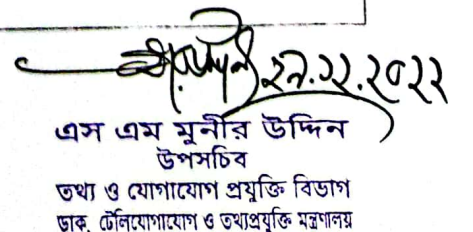 ২৭.১২.২০২২
এস এম মুনীর উদ্দিন
উপসচিব
তথ্য ও যোগাযোগ প্রযুক্তি বিভাগ
ডাক, টেলিযোগাযোগ ও তথ্যপ্রযুক্তি মন্ত্রণালয়